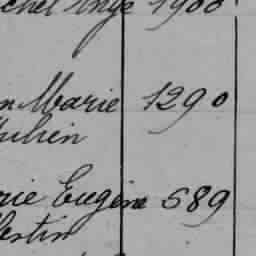 chel Ange 1900
n Marie 1290
Julien
rie Eugène 589
lestin